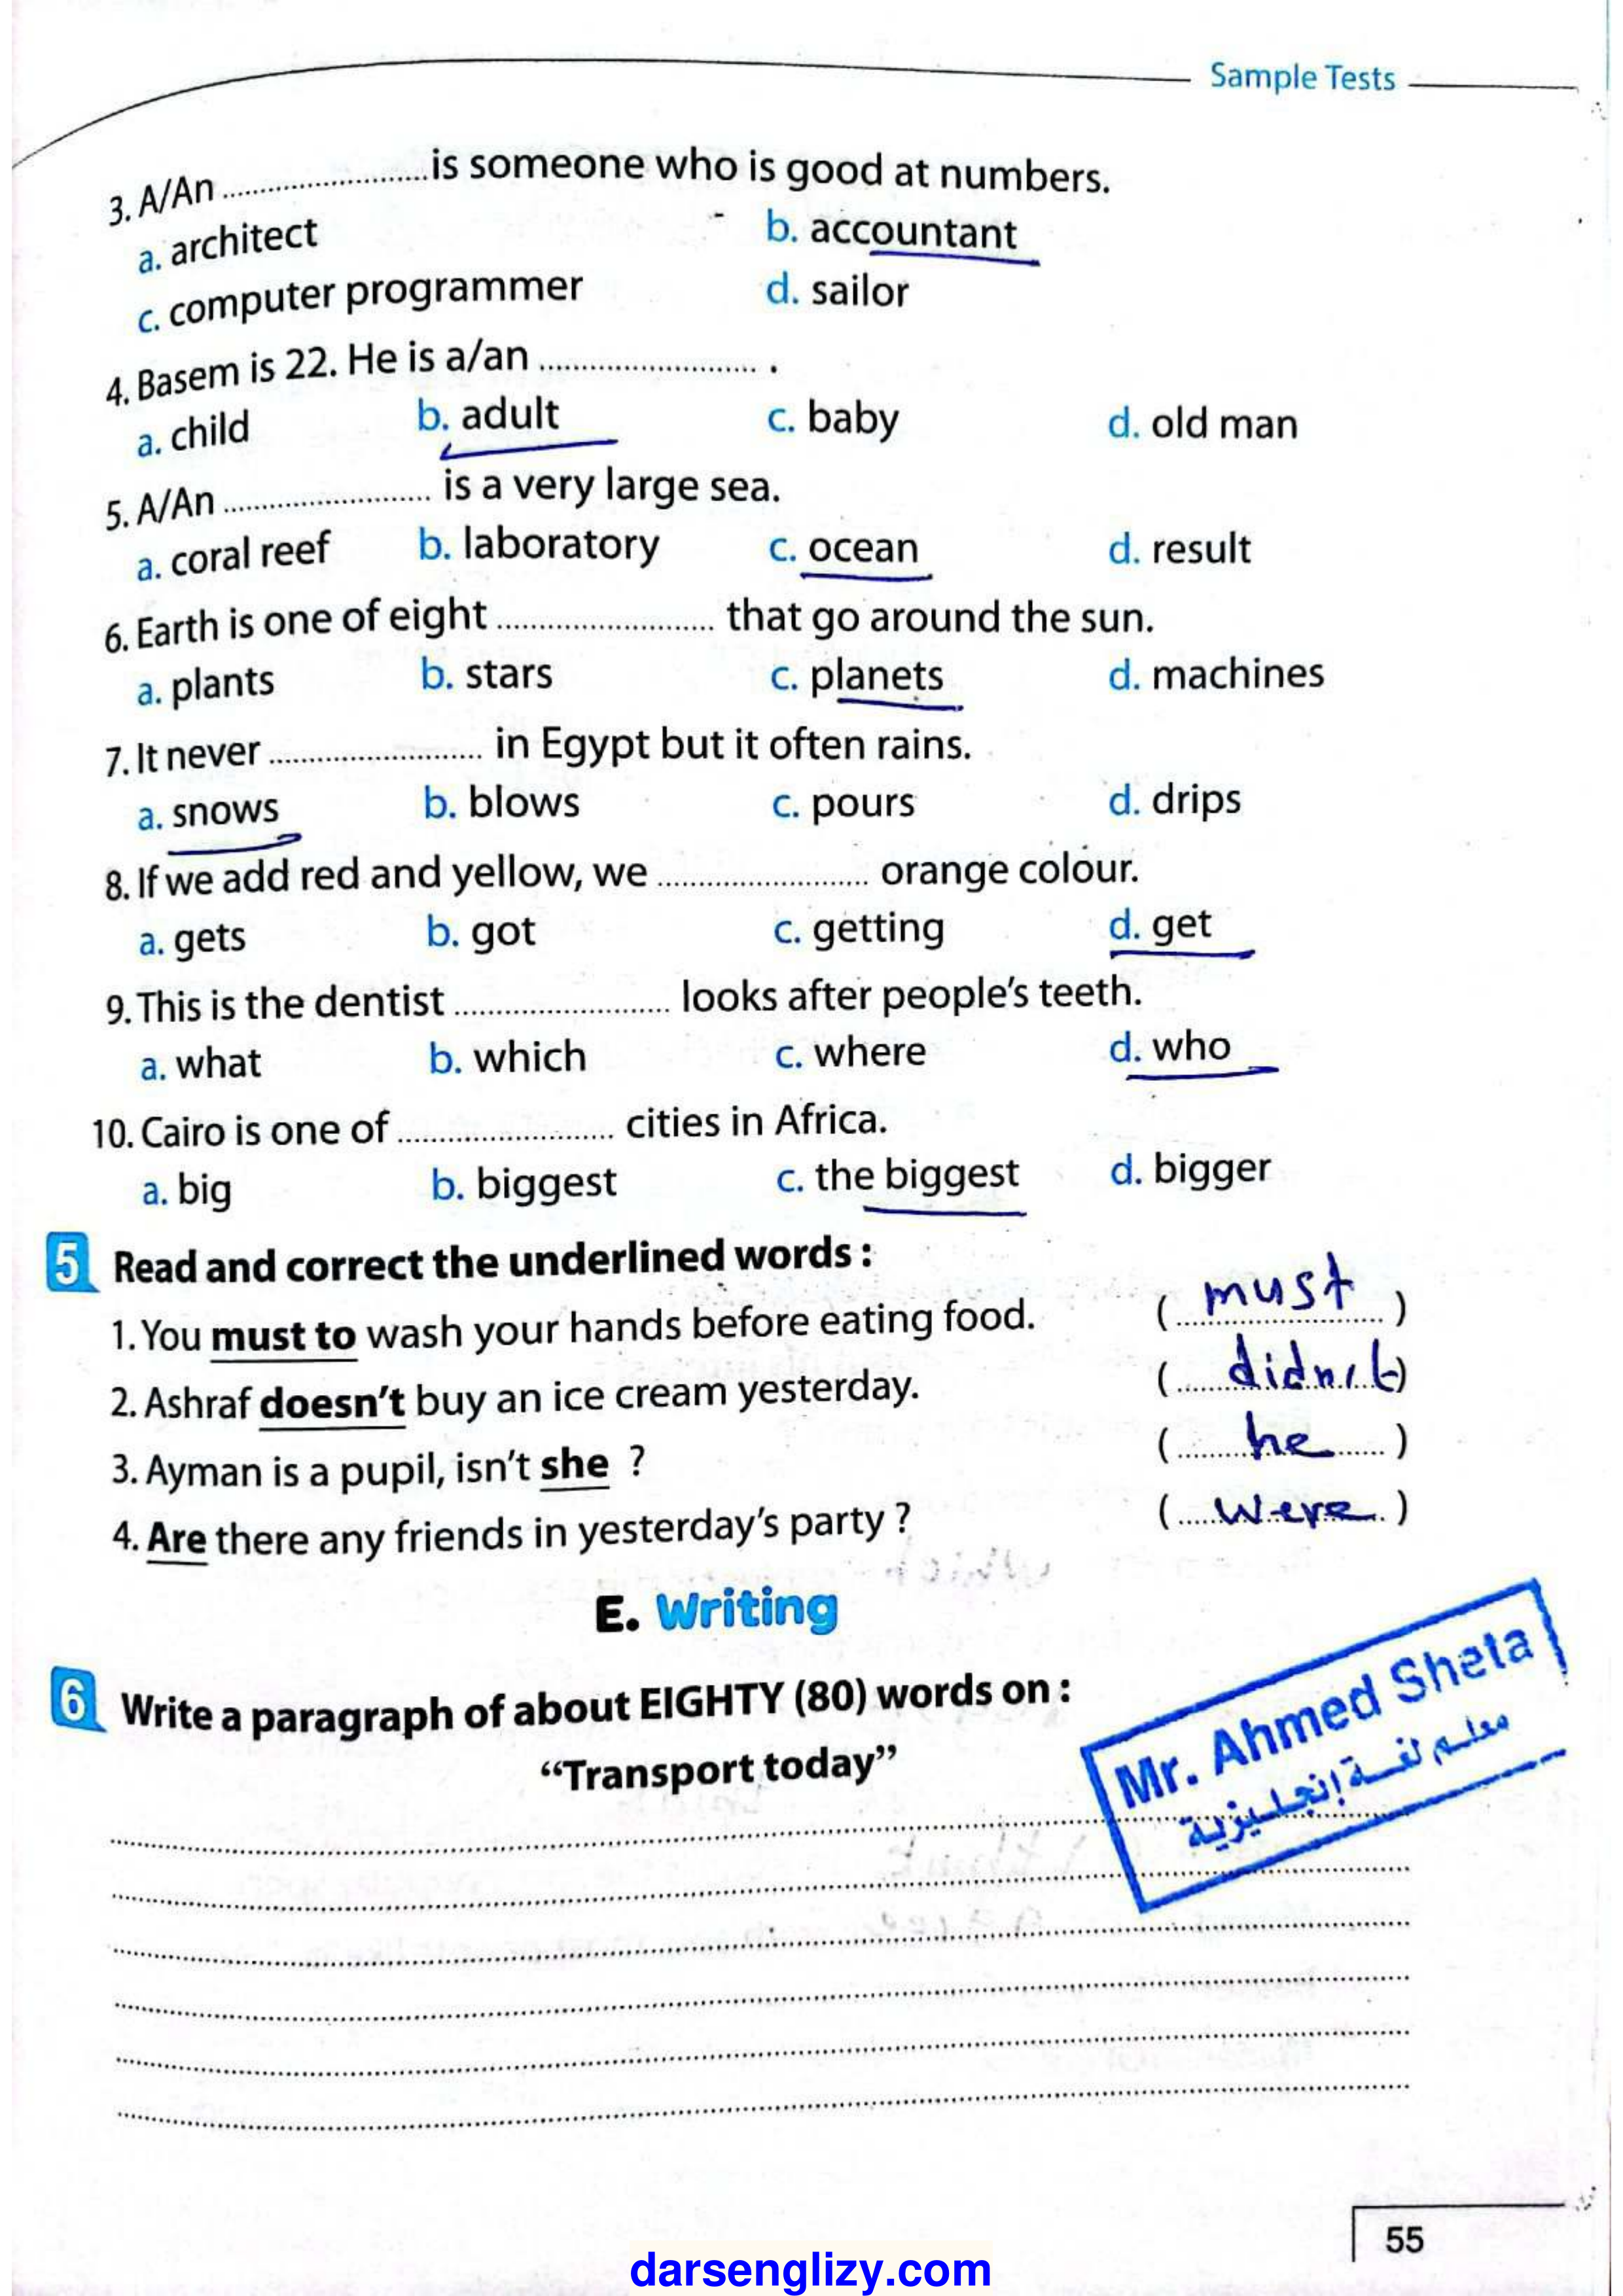 Sample Tests
3. A/An ........................ is someone who is good at numbers.
a. architect b. accountant
c. computer programmer d. sailor
4. Basem is 22. He is a/an ........................ .
a. child b. adult c. baby d. old man
5. A/An ........................ is a very large sea.
a. coral reef b. laboratory c. ocean d. result
6. Earth is one of eight ........................ that go around the sun.
a. plants b. stars c. planets d. machines
7. It never ........................ in Egypt but it often rains.
a. snows b. blows c. pours d. drips
8. If we add red and yellow, we ........................ orange colour.
a. gets b. got c. getting d. get
9. This is the dentist ........................ looks after people's teeth.
a. what b. which c. where d. who
10. Cairo is one of ........................ cities in Africa.
a. big b. biggest c. the biggest d. bigger
5 Read and correct the underlined words :
1. You must to wash your hands before eating food. (must)
2. Ashraf doesn't buy an ice cream yesterday. (didn't)
3. Ayman is a pupil, isn't she ? (he)
4. Are there any friends in yesterday's party ? (were)
E. Writing
6 Write a paragraph of about EIGHTY (80) words on :
"Transport today"
Mr. Ahmed Sheta
معلم لغة إنجليزية
55
darsenglizy.com